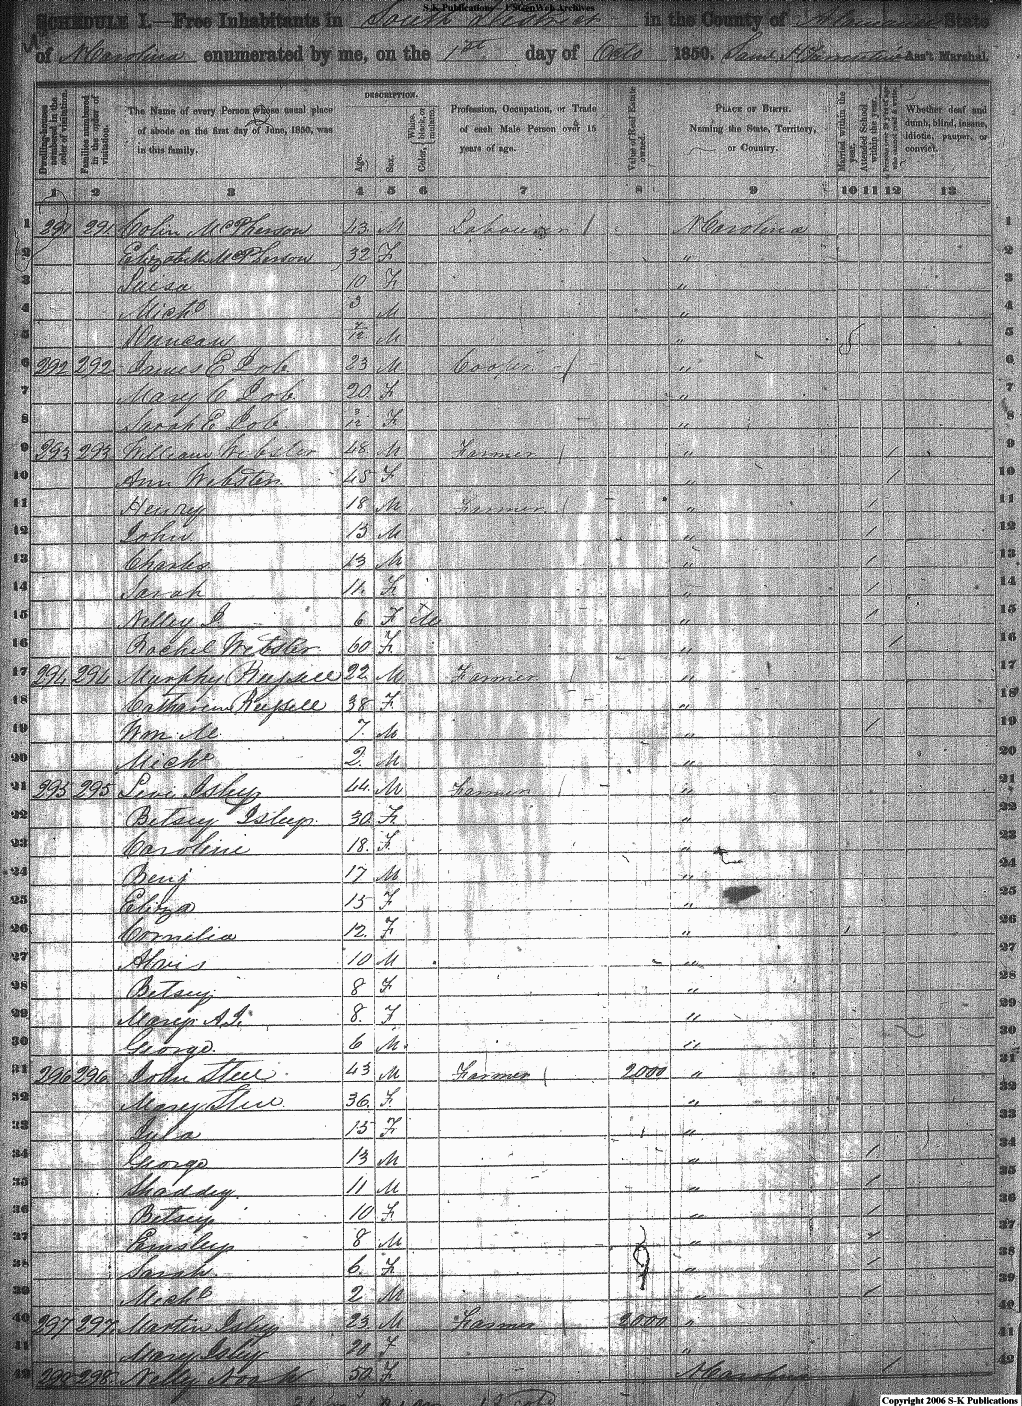 S-K Publications - USGenWeb Archives
SCHEDULE I.—Free Inhabitants in South District in the County of Alamance State
of N Carolina enumerated by me, on the 1st day of Octo 1850. Ass't Marshal.
Dwelling-houses numbered in the order of visitation.
Families numbered in the order of visitation.
The Name of every Person whose usual place of abode on the first day of June, 1850, was in this family.
DESCRIPTION.
Age.
Sex.
Color, White, black, or mulatto.
Profession, Occupation, or Trade of each Male Person over 15 years of age.
Value of Real Estate owned.
PLACE OF BIRTH. Naming the State, Territory, or Country.
Married within the year.
Attended School within the year.
Whether deaf and dumb, blind, insane, idiotic, pauper, or convict.
1 2 3 4 5 6 7 8 9 10 11 12 13
1 291 291 Colin McPherson 43 M Labourer / N Carolina 1
2 Elizabeth McPherson 32 F " 2
3 10 F " 3
4 Michl 3 M " 4
5 Duncan /12 M " 5
6 292 292 James E 23 M Cooper / " 6
7 Mary C 20 F " 7
8 Sarah E /12 F " 8
9 293 293 William Webster 48 M Farmer / " / 9
10 Ann Webster 45 F " / 10
11 Henry 18 M Farmer / " / 11
12 John 15 M " / 12
13 Charles 13 M " / 13
14 Sarah 11 F " / 14
15 Nelley J 6 F M " / 15
16 Rachel Webster 60 F " / 16
17 294 294 Murphy Russell 22 M Farmer / " 17
18 Catharine Russell 38 F " 18
19 Wm M 7 M " / 19
20 Michl 2 M " 20
21 295 295 Levi Isley 44 M Farmer / " 21
22 Betsey Isley 30 F " 22
23 Caroline 18 F " 23
24 Benj 17 M " 24
25 Eliza 15 F " 25
26 Cornelia 12 F " 26
27 Alvis 10 M " 27
28 Betsey 8 F " 28
29 Mary A. 8 F " 29
30 George 6 M " 30
31 296 296 John Steel 43 M Farmer / 2000 " 31
32 Mary Steel 36 F " 32
33 Jula 15 F " 33
34 George 13 M " / 34
35 Shaddy 11 M " / 35
36 Betsey 10 F " / 36
37 Emsley 8 M " / 37
38 Sarah 6 F " / 38
39 Michl 2 M " / 39
40 297 297 Martin Isley 23 M Farmer / 2000 " 40
41 Mary Isley 20 F " 41
42 298 298 Nelly Noah 50 F N Carolina / 42
Copyright 2006 S-K Publications